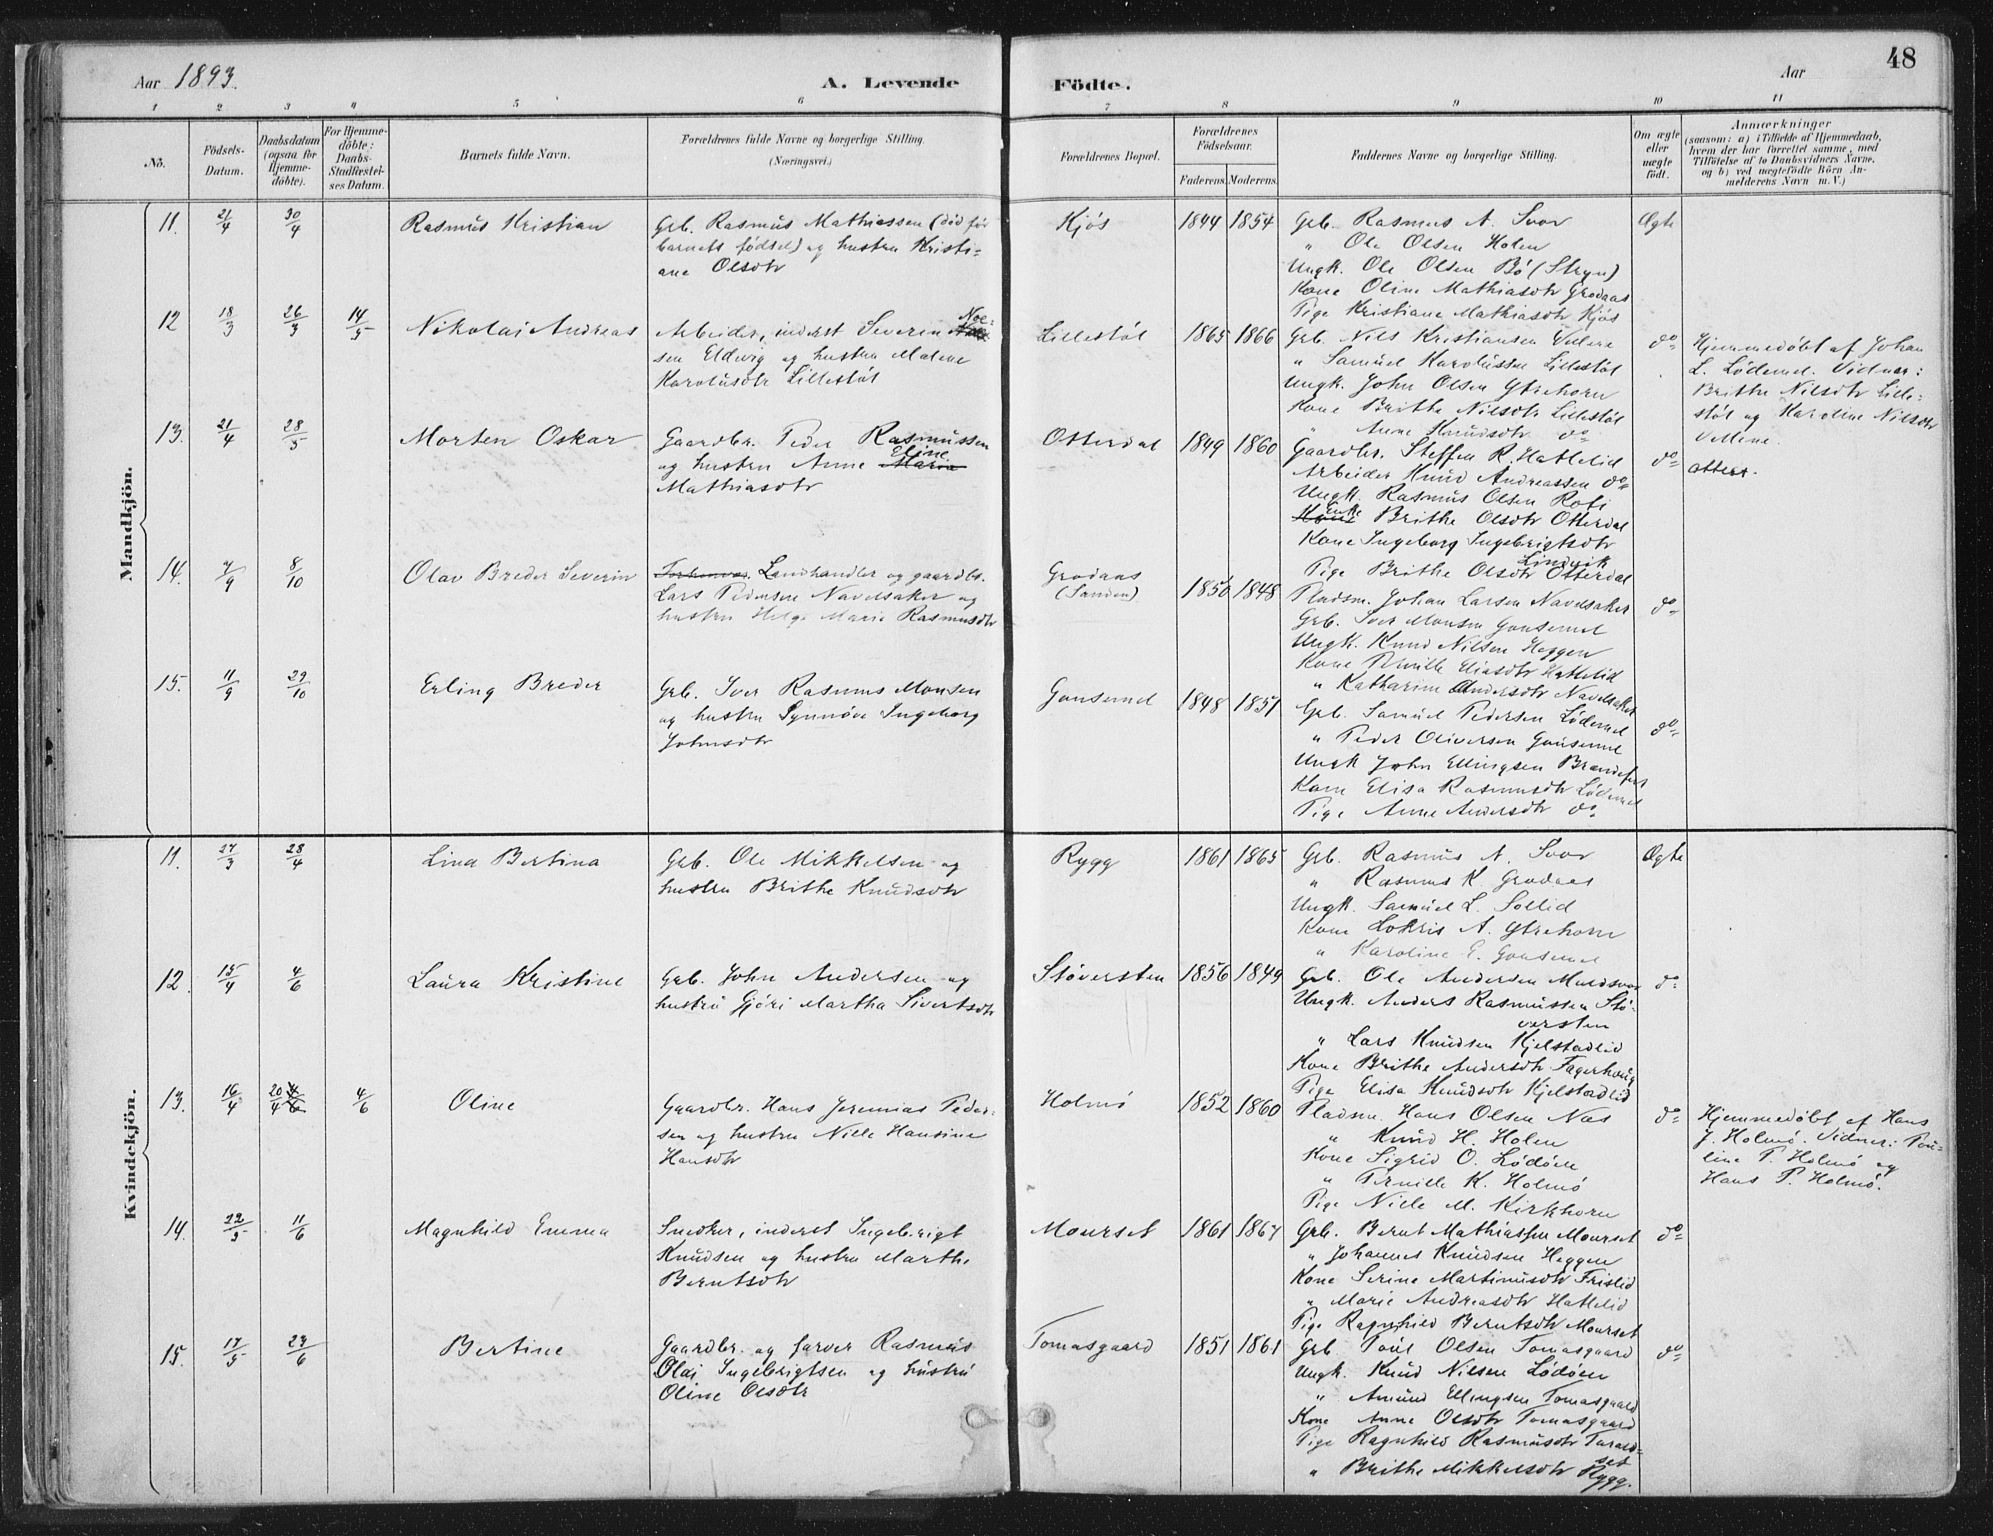 48
Aar 1893.
A. Levende Födte.
Aar
1 2 3 4 5 6 7 8 9 10 11
No.
Födsels-Datum.
Daabsdatum (ogsaa for Hjemmedöbte).
For Hjemmedöbte: Daabs-Stadfestelses Datum.
Barnets fulde Navn.
Forældrenes fulde Navne og borgerlige Stilling (Næringsvei.)
Forældrenes Bopæl.
Forældrenes Födselsaar.
Faderens. Moderens.
Faddernes Navne og borgerlige Stilling.
Om ægte eller uægte födt.
Anmærkninger
(saasom: a) i Tilfælde af Hjemmedaab,
hvem der har forrettet samme, med
Tilföielse af to Daabsvidners Navne,
og b) ved uægtefödte Börn Anmelderens Navn m. V.)
Mandkjön.
11. 21/4 30/4 Rasmus Kristian
Grb. Rasmus Mathiassen (död før
barnets födsel) og hustru Kristi-
ane Olsdtr
Kjós 1844 1854
Grb. Rasmus A. Svor
" Ole Olsen Holen
Ungk. Ole Olsen Bö (Stryn)
Kone Oline Mathiasdtr Grodaas
Pige Kristiane Mathiasdtr Kjós
Ægte
12 18/3 26/3 14/5 Nikolai Andreas
Arbeider, inderst Severin Noe-
sen Eldevig og hustru Malene
Karolusdtr Lillestöl
Lillestöl 1865 1866
Grb. Nils Kristiansen
" Samuel Karolussen Lillestöl
Ungk. John Olsen Ytrehorn
Kone Brithe Nilsdtr Lillestöl
" Anne Knudsdtr do
do
Hjemmedöbt af Johan
L. Lödemel. Vidner:
Brithe Nilsdtr Lille-
stöl og Karoline Nilsdtr
13. 21/4 28/5 Morten Oskar
Gaardbr. Peder Rasmussen
og hustru Anne Maria Eline
Mathiasdtr
Otterdal 1849 1860
Gaardbr. Steffen R. Hattelid
Arbeider Knud Andreassen do
Ungk. Rasmus Olsen Roti
Kone Enke Brithe Olsdtr Otterdal
Kone Ingeborg Ingebrigtsdtr
Lindvik
Pige Brithe Olsdtr Otterdal
do
attest.
14. 7/9 8/10 Olav Breder Severin
Landhandler og gaardbr.
Lars Pedersen Navelsaker og
hustru Helge Marie Rasmusdtr
Grodaas
(Sanden)
1850 1848
Pladsm. Johan Larsen Navelsaker
Grb. Iver Monsen Gausemel
Ungk. Knud Nilsen Heggen
Kone Pernille Eliasdtr Hattelid
" Katharine Andersdtr Navelsaker
do
15. 11/9 29/10 Erling Breder
Grb. Iver Rasmus Monsen
og hustru Synnöve Ingeborg
Johnsdtr
Gausemel 1848 1851
Grb. Samuel Pedersen Lödemel
" Peder Oliversen Gausemel
Ungk John Ellingsen
Kone Elisa Rasmusdtr Lödemel
Pige Anne Andersdtr do
do
Kvindekjön.
11. 27/3 28/4 Lina Bertina
Grb. Ole Mikkelsen og
hustru Brithe Knudsdtr
Rygg 1861 1865
Grb. Rasmus A. Svor
" Rasmus K. Grodaas
Ungk. Samuel L. Sollid
Kone Lokris A. Ytrehorn
" Karoline E. Gausemel
Ægte
12. 15/4 4/6 Laura Kristine
Grb. John Andersen og
hustru Gjöri Martha Sivertsdtr
Stöversten 1856 1849
Grb. Ole Andersen Muldsvor
Ungk. Anders Rasmussen Stö-
versten
" Lars Knudsen Kjelstadlid
Kone Brithe Andersdtr Fagerhaug
Pige Elisa Knudsdtr Kjelstadlid
do
13. 16/4 20/4 4/6 4/6 Oline
Gaardbr. Hans Jeremias Peder-
sen og hustru Nille Hansine
Hansdtr
Holmö 1852 1860
Pladsm. Hans Olsen Nos
" Knud H. Holen
Kone Sigrid O. Lödöen
" Pernille K. Holmö
Pige Nille M. Kirkhorn
do
Hjemmedöbt af Hans
J. Holmö. Vidner: Pau-
line P. Holmö og
Hans P. Holmö.
14. 22/5 11/6 Magnhild Emma
Snedker, inderst Ingebrigt
Knudsen og hustru Marthe
Berntsdtr
Mourset 1861 1867
Grb. Bernt Mathiassen Mourset
" Johannes Knudsen Heggen
Kone Serine Martinusdtr Frislid
" Marie Andreasdtr Hattelid
Pige Ragnhild Berntsdtr Mourset
do
15. 17/5 27/6 Bertine
Gaardbr. og farver Rasmus
Olai Ingebrigtsen og hustru
Oline Olsdtr
Tomasgaard 1851 1861
Grb Poul Olsen Tomasgaard
Ungk. Knud Nilsen Lödöen
" Amund Ellingsen Tomasgaard
Kone Anne Olsdtr Tomasgaard
Pige Ragnhild Rasmusdtr Tarald-
set
" Brithe Mikkelsdtr Rygg.
do